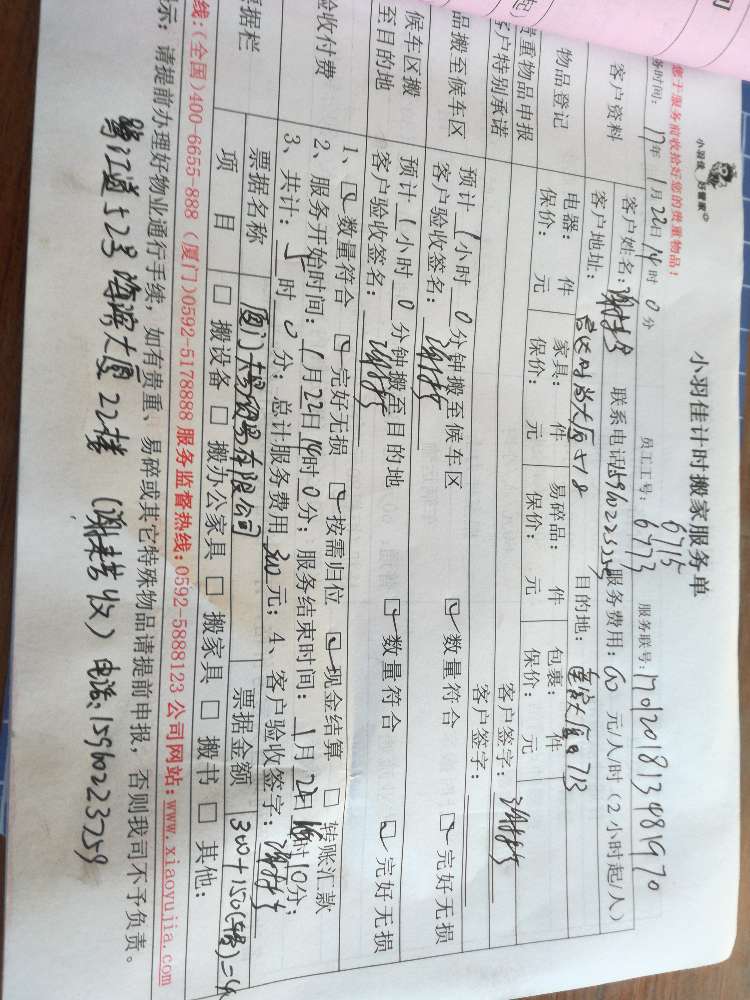 小羽佳 好管家
小羽佳计时搬家服务单
您于服务前收拾好您的贵重物品！
务时间： 17年 1月 22日 14时 0分 员工工号： 6715 6773 服务联号： 170120181348 1970
客户资料
客户姓名： 联系电话： 15960223259 服务费用： 60 元/人/时（2小时起/人）
客户地址： 时尚大厦 目的地： 713
物品登记
电器： 件 家具： 件 易碎品： 件 包裹： 件
保价： 元 保价： 元 保价： 元 保价： 元
贵重物品申报
客户特别承诺
客户签字：
客户签字：
品搬至候车区
预计 1 小时 0 分钟搬至候车区
客户验收签名： 数量符合 完好无损
候车区搬
至目的地
预计 1 小时 0 分钟搬至目的地
客户验收签名： 数量符合 完好无损
验收付费
1、 数量符合 完好无损 按需归位 现金结算 □ 转账汇款
2、服务开始时间： 1月 22日 14时 0分；服务结束时间： 1月 22日 时 10分；
3、共计： 时 0 分；总计服务费用 300 元；4、客户验收签字：
票据栏
票据名称 厦门 有限公司 票据金额 300+150
项 目 □ 搬设备 □ 搬办公家具 □ 搬家具 □ 搬书 □ 其他：
线：(全国)400-6655-888 (厦门)0592-5178888 服务监督热线：0592-5888123 公司网站：www.xiaoyujia.com
示：请提前办理好物业通行手续，如有贵重、易碎或其它特殊物品请提前申报，否则我司不予负责。
鹭江道52号海滨大厦22楼 (谢 收) 电话：15960223259